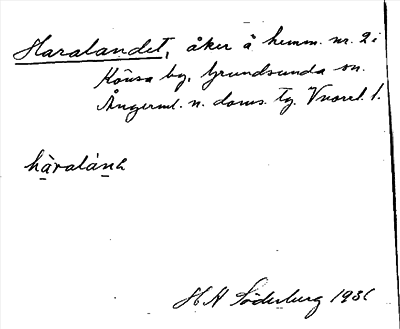 Haralandet, åker å hemm. nr. 2 i
Könsa by, Grundsunda sn.
Ångerml. n. doms. tg.
hàralánh
H A Söderberg 1931